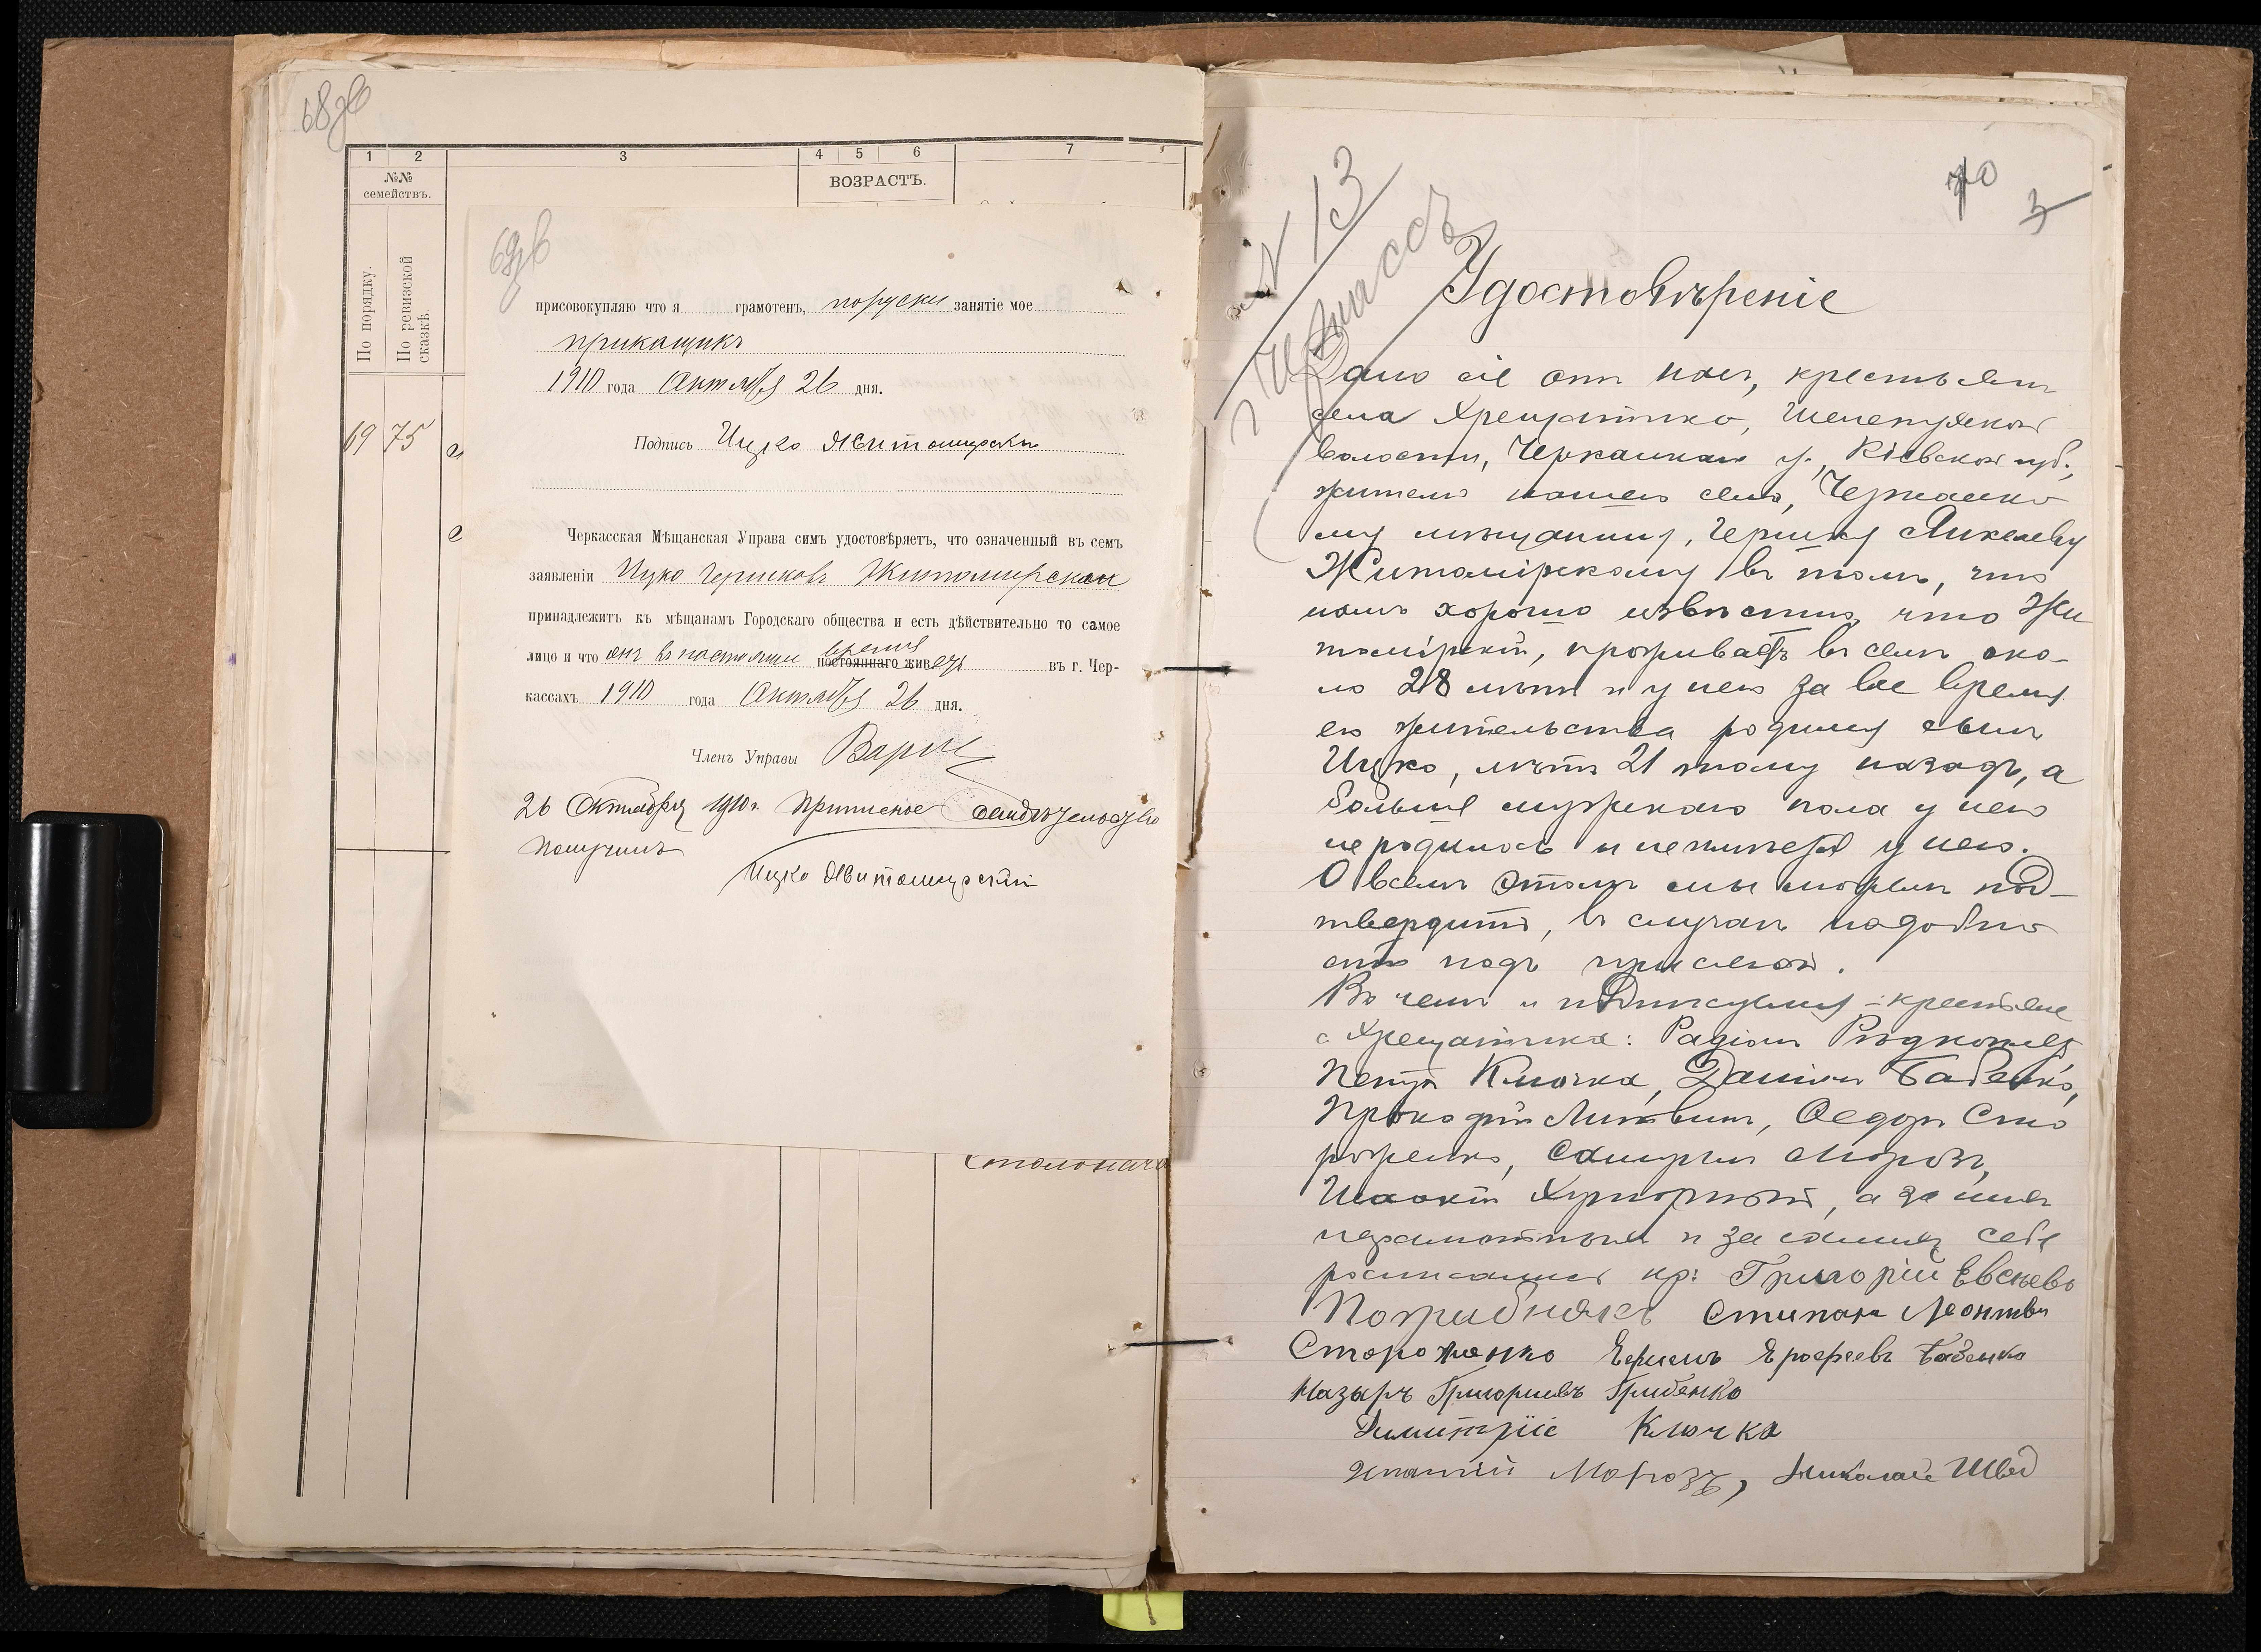 68об
1 2 3 4 5 6 7
№№
семействъ.
ВОЗРАСТЪ.
По порядку.
По ревизской
сказкѣ.
19 75
69об
присовокупляю что я грамотенъ, поруски занятіе мое
прикащикъ
1910 года Октября 26 дня.
Подпись Ицко Житомирски
Черкасская Мѣщанская Управа симъ удостовѣряетъ, что означенный въ семъ
заявленіи Ицко Гершковъ Житомирский
принадлежитъ къ мѣщанамъ Городскаго общества и есть дѣйствительно то самое
лицо и что онъ въ настоящее время постояннаго живетъ въ г. Чер-
кассахъ 1910 года Октября 26 дня.
Членъ Управы
26 Октября 1910 г. Приписное свидѣтельство
получилъ
Ицко Житомирский
70
3
№ 13
г Черкассъ
Удостовѣреніе
Дано сіе отъ насъ, крестьянъ
села Хрещатика, Шелепухской
волости, Черкасскаго у., Кіевской губ.,
жителю нашего села, Черкасско
му мѣщанину, Гершку Янкелеву
Житомірскому въ томъ, что
намъ хорошо извѣстно, что Жи
томірскій, проживаетъ въ селѣ око-
ло 28 лѣтъ и у него за все время
его жительства родился сынъ
Ицко, лѣтъ 21 тому назадъ, а
больше мужскаго пола у него
не родилось и не имѣется у него.
О всемъ этомъ мы можемъ под-
твердить, въ случаѣ надобно
сти подъ присягой.
Въ чемъ и подписуемся - крестьяне
с Хрещатика: Радіонъ
Петръ Клочка, Данило Бабенко,
Прокофій Литвинъ, Федоръ Сто
роженко, Самуилъ Морозъ,
а за нихъ
неграмотныхъ и за самихъ себя
росписались кр: Григорій Евсѣевъ
Погрибнякъ Стипанъ Леонтьев
Стороженко Ефимъ Ярофеевъ Бабенко
Назаръ Григориевъ Грибенко
Димитріє Клочка
Игнатій Морозъ, Николай Швед